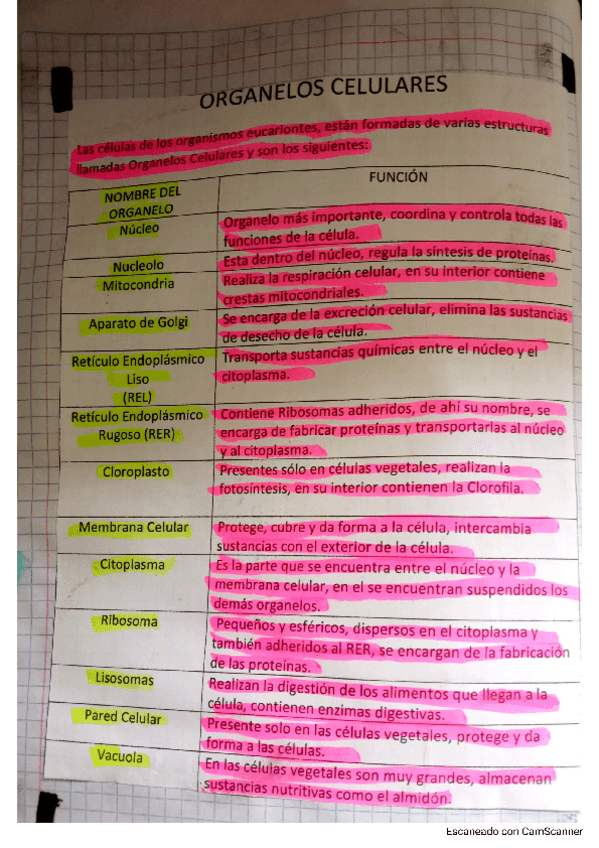 ORGANELOS CELULARES
Las células de los organismos eucariontes, están formadas de varias estructuras
llamadas Organelos Celulares y son los siguientes:
NOMBRE DEL
ORGANELO
FUNCIÓN
Núcleo
Organelo más importante, coordina y controla todas las
funciones de la célula.
Nucleolo
Esta dentro del núcleo, regula la síntesis de proteínas.
Mitocondria
Realiza la respiración celular, en su interior contiene
crestas mitocondriales.
Aparato de Golgi
Se encarga de la excreción celular, elimina las sustancias
de desecho de la célula.
Retículo Endoplásmico
Liso
(REL)
Transporta sustancias químicas entre el núcleo y el
citoplasma.
Retículo Endoplásmico
Rugoso (RER)
Contiene Ribosomas adheridos, de ahí su nombre, se
encarga de fabricar proteínas y transportarlas al núcleo
y al citoplasma.
Cloroplasto
Presentes sólo en células vegetales, realizan la
fotosíntesis, en su interior contienen la Clorofila.
Membrana Celular
Protege, cubre y da forma a la célula, intercambia
sustancias con el exterior de la célula.
Citoplasma
Es la parte que se encuentra entre el núcleo y la
membrana celular, en el se encuentran suspendidos los
demás organelos.
Ribosoma
Pequeños y esféricos, dispersos en el citoplasma y
también adheridos al RER, se encargan de la fabricación
de las proteínas.
Lisosomas
Realizan la digestión de los alimentos que llegan a la
célula, contienen enzimas digestivas.
Pared Celular
Presente solo en las células vegetales, protege y da
forma a las células.
Vacuola
En las células vegetales son muy grandes, almacenan
sustancias nutritivas como el almidón.
Escaneado con CamScanner